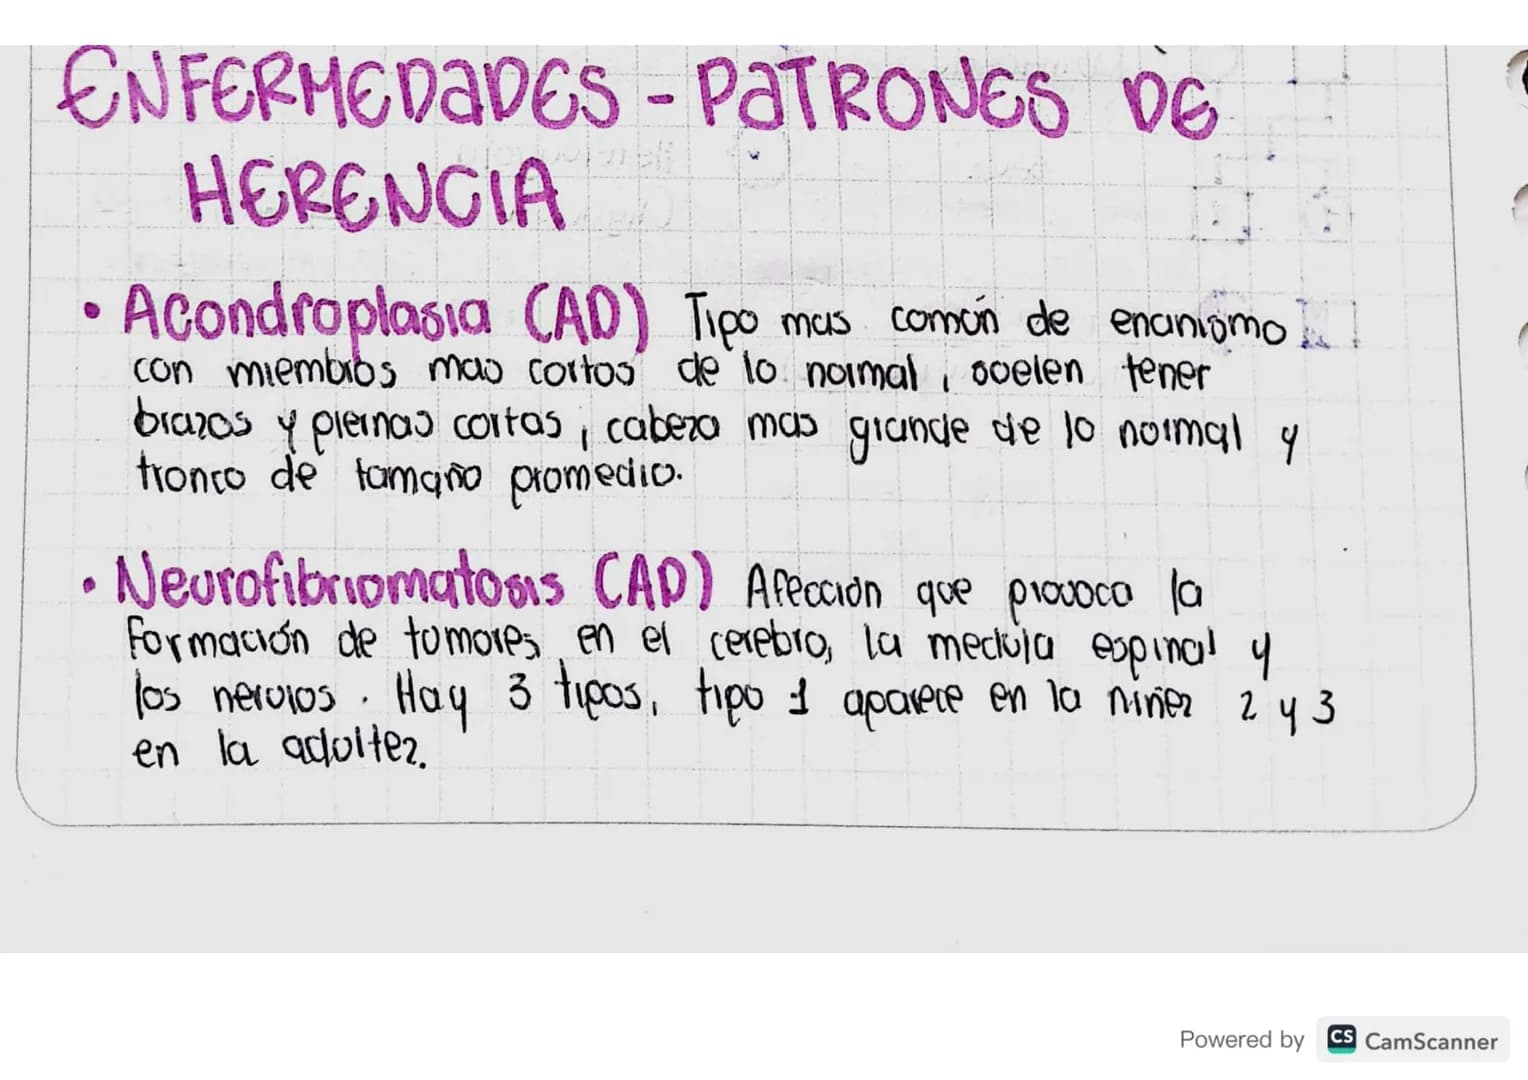 ENFERMEDADES - PATRONES DE
HERENCIA
• Acondroplasia (AD) Tipo mas común de enanismo
con miembros mas cortos de lo normal, suelen tener
brazos y piernas cortas, cabeza mas grande de lo normal y
tronco de tamaño promedio.
• Neurofibriomatosis (AD) Afección que provoca la
formación de tumores en el cerebro, la medula espinal y
los nervios. Hay 3 tipos, tipo 1 aparece en la niñez 2 y 3
en la adultez.
Powered by CS CamScanner